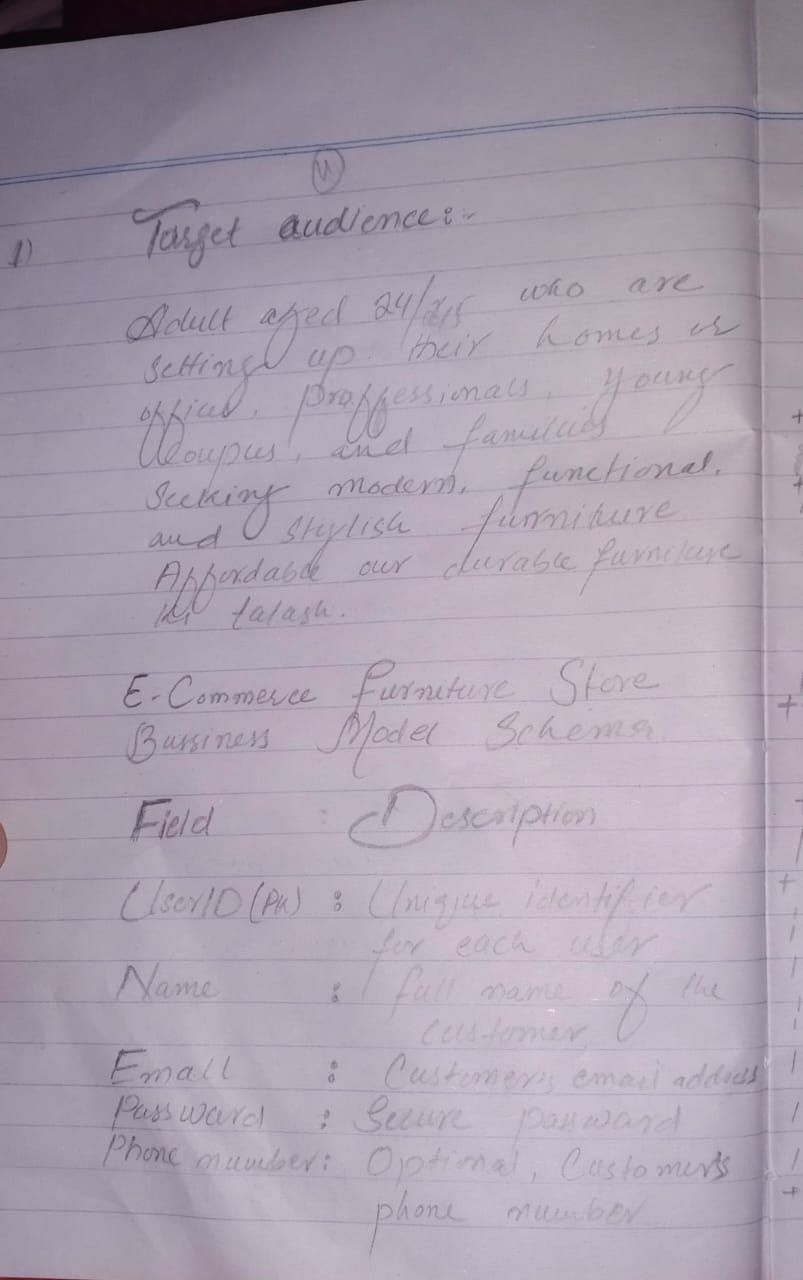 1) Target audience:-
Adult aged 24/ who are
setting up their homes or
offices, proffessionals, young
Coupus, and families
Seeking modern, functional,
and stylish furniture
Affordable our durable furniture
ki talash.
E-Commerce furniture Store
Bussiness Model Schema
Field : Description
UserID (PK) : Unique identifier
for each user
Name : full name of the
customer
Email : Customer's email address
Password : Secure password
Phone number : Optional, Customer's
phone number